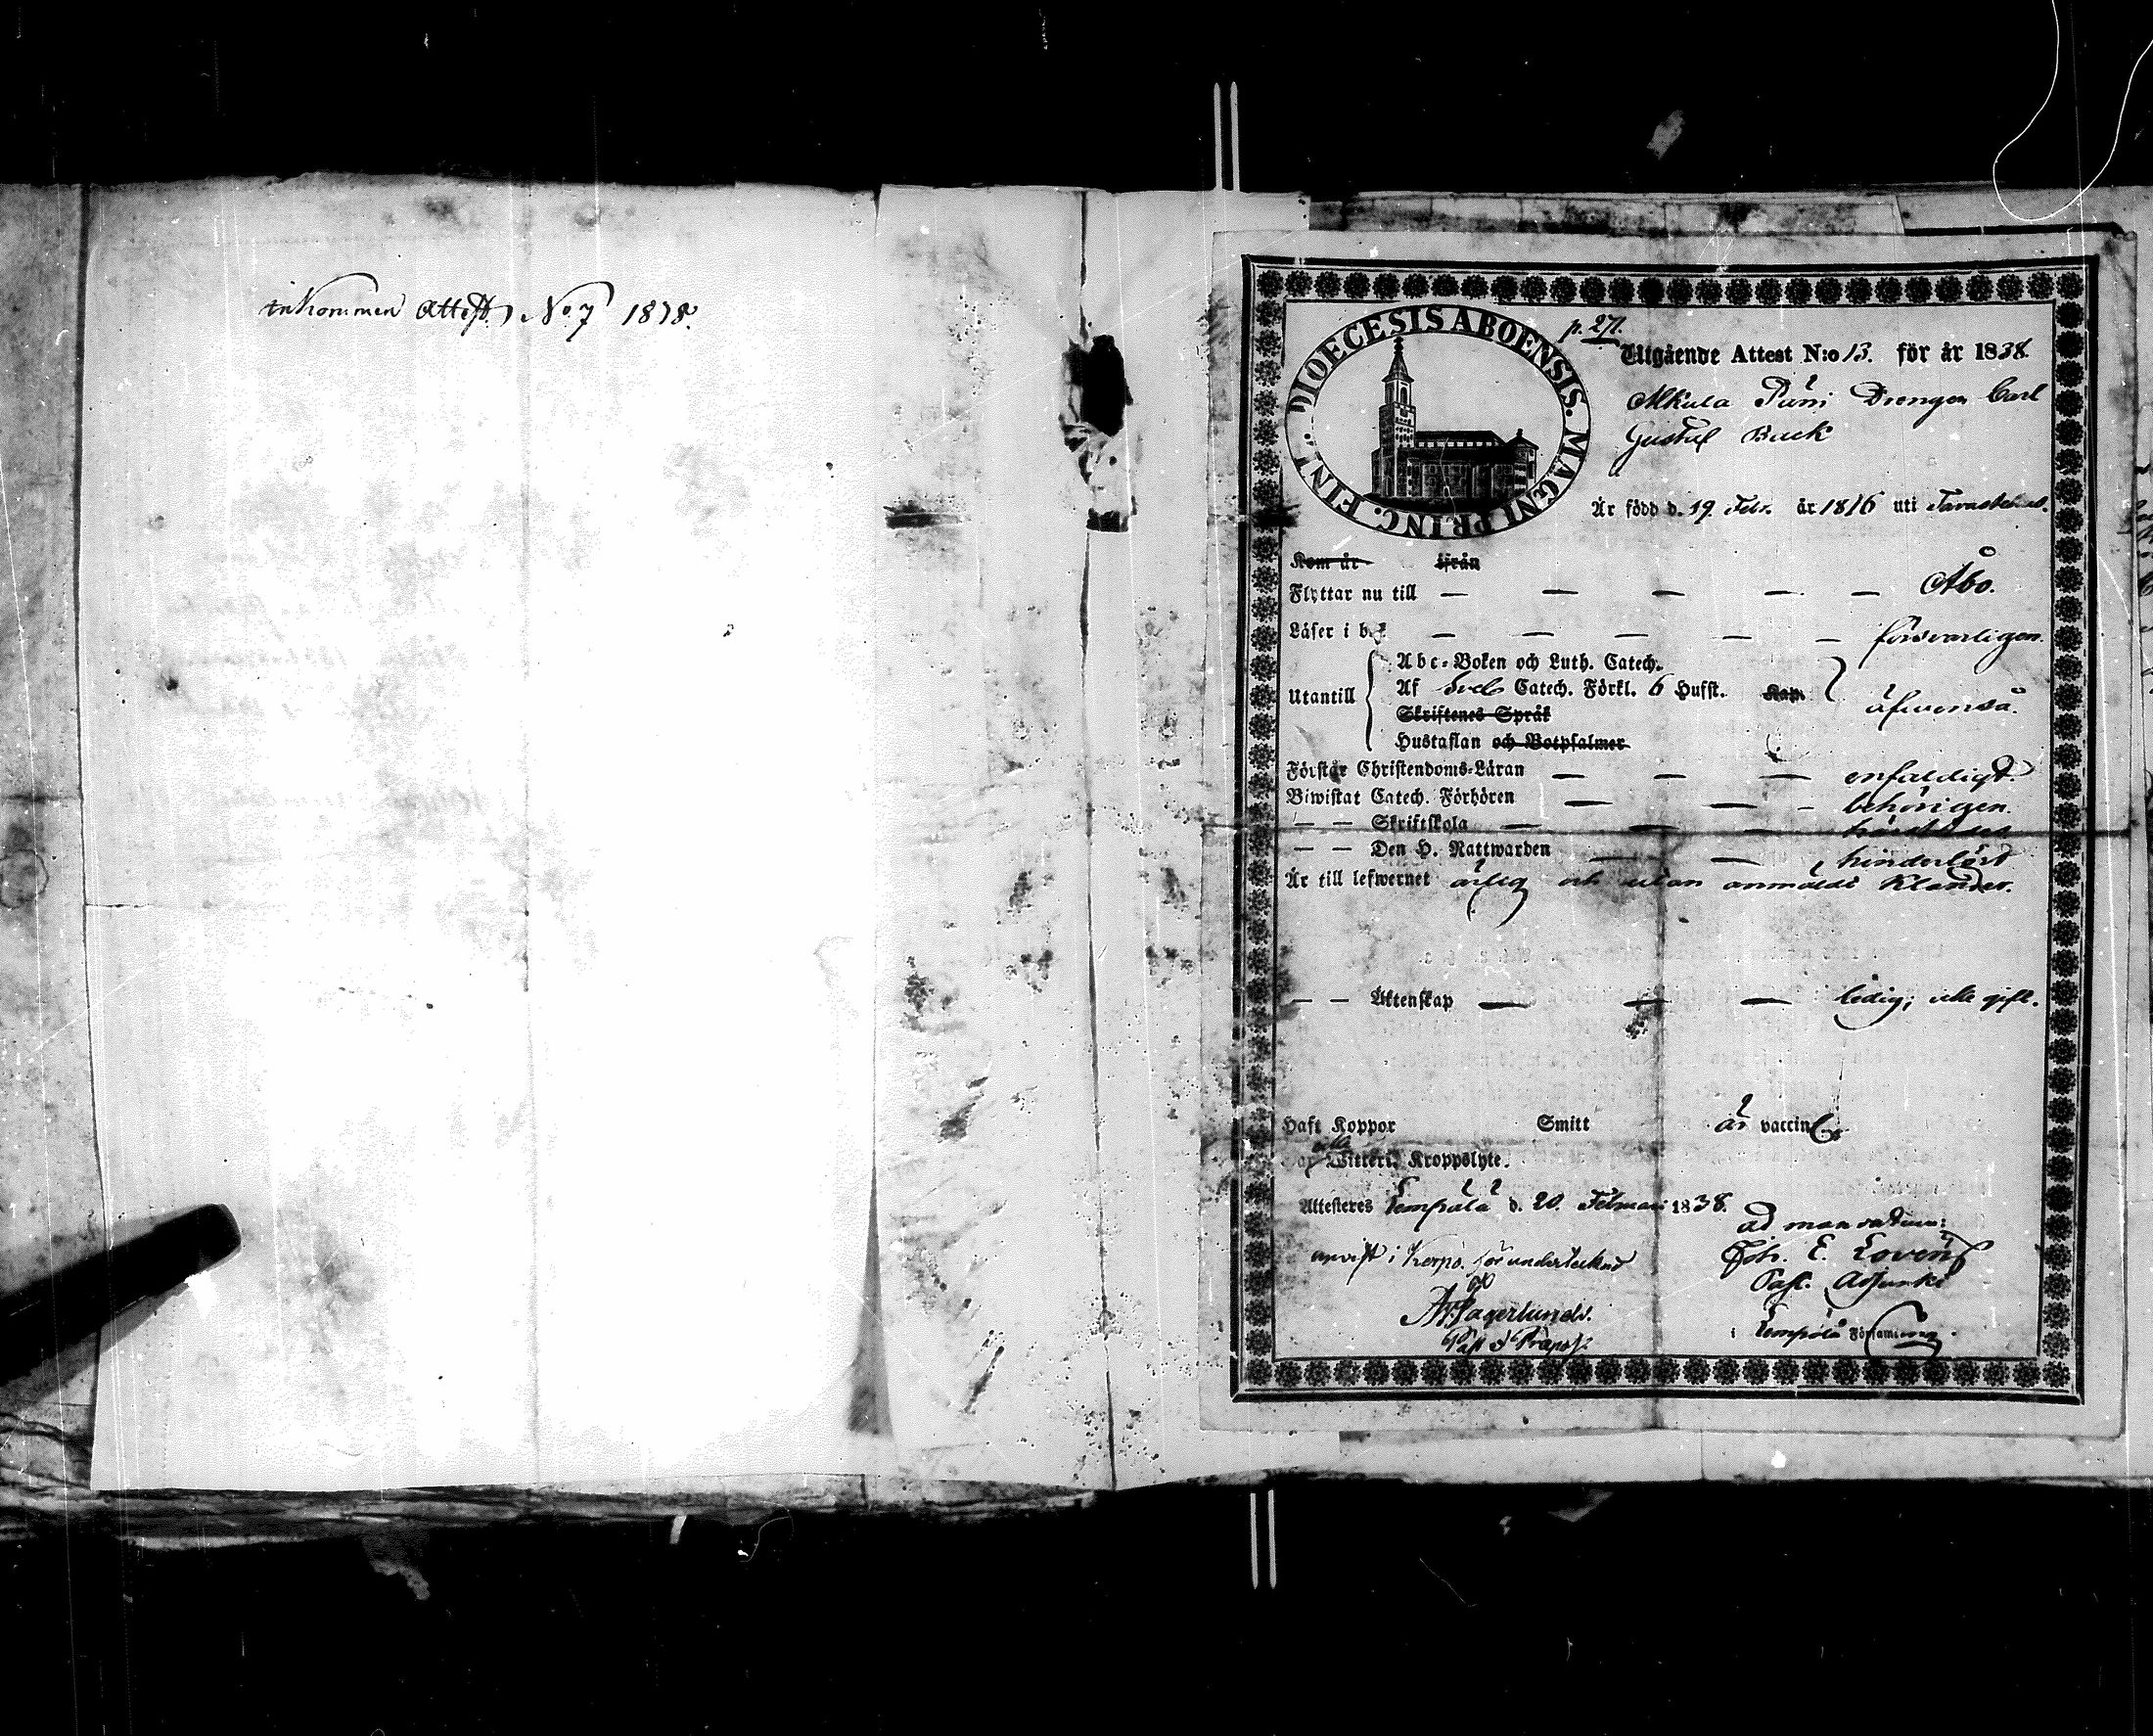 inkommen Attest No 7 1838.
DIOECESIS ABOENSIS. MAGNI PRINC. FINL.
p. 271.
Utgående Attest N:o 13. för år 1838.
Drengen Carl
Gustaf Back
Är född d. 19. Febr. år 1816 uti Tavastehus.
Kom år ifrån
Flyttar nu till — — — — — Åbo.
Läser i bok — — — — — försvarligen.
Abc-Boken och Luth. Catech.
Utantill Af Sveb Catech. Förkl. 6 Hufst. Kap. äfvenså.
Skriftenes Språk
Hustaflan och Botpsalmer
Förstår Christendoms-Läran — — — enfaldigt.
Biwistat Catech. Förhören — — — behörigen.
— — Skriftskola — — —
— — Den H. Nattwarden — — hinderlöst
Är till lefwernet ärlig och utan anmäldt klander.
— — Äktenskap — — — ledig, icke gift.
Haft Koppor Smitt är vaccin
Kroppslyte.
Attesteres Lempälä d. 20. Februari 1838.
ad mandatum:
i Korpo för undertecknad
Joh. E. Lovén
Past. Adjunkt
Fagerlund.
Past & Præpos.
i Lempälä Församling.